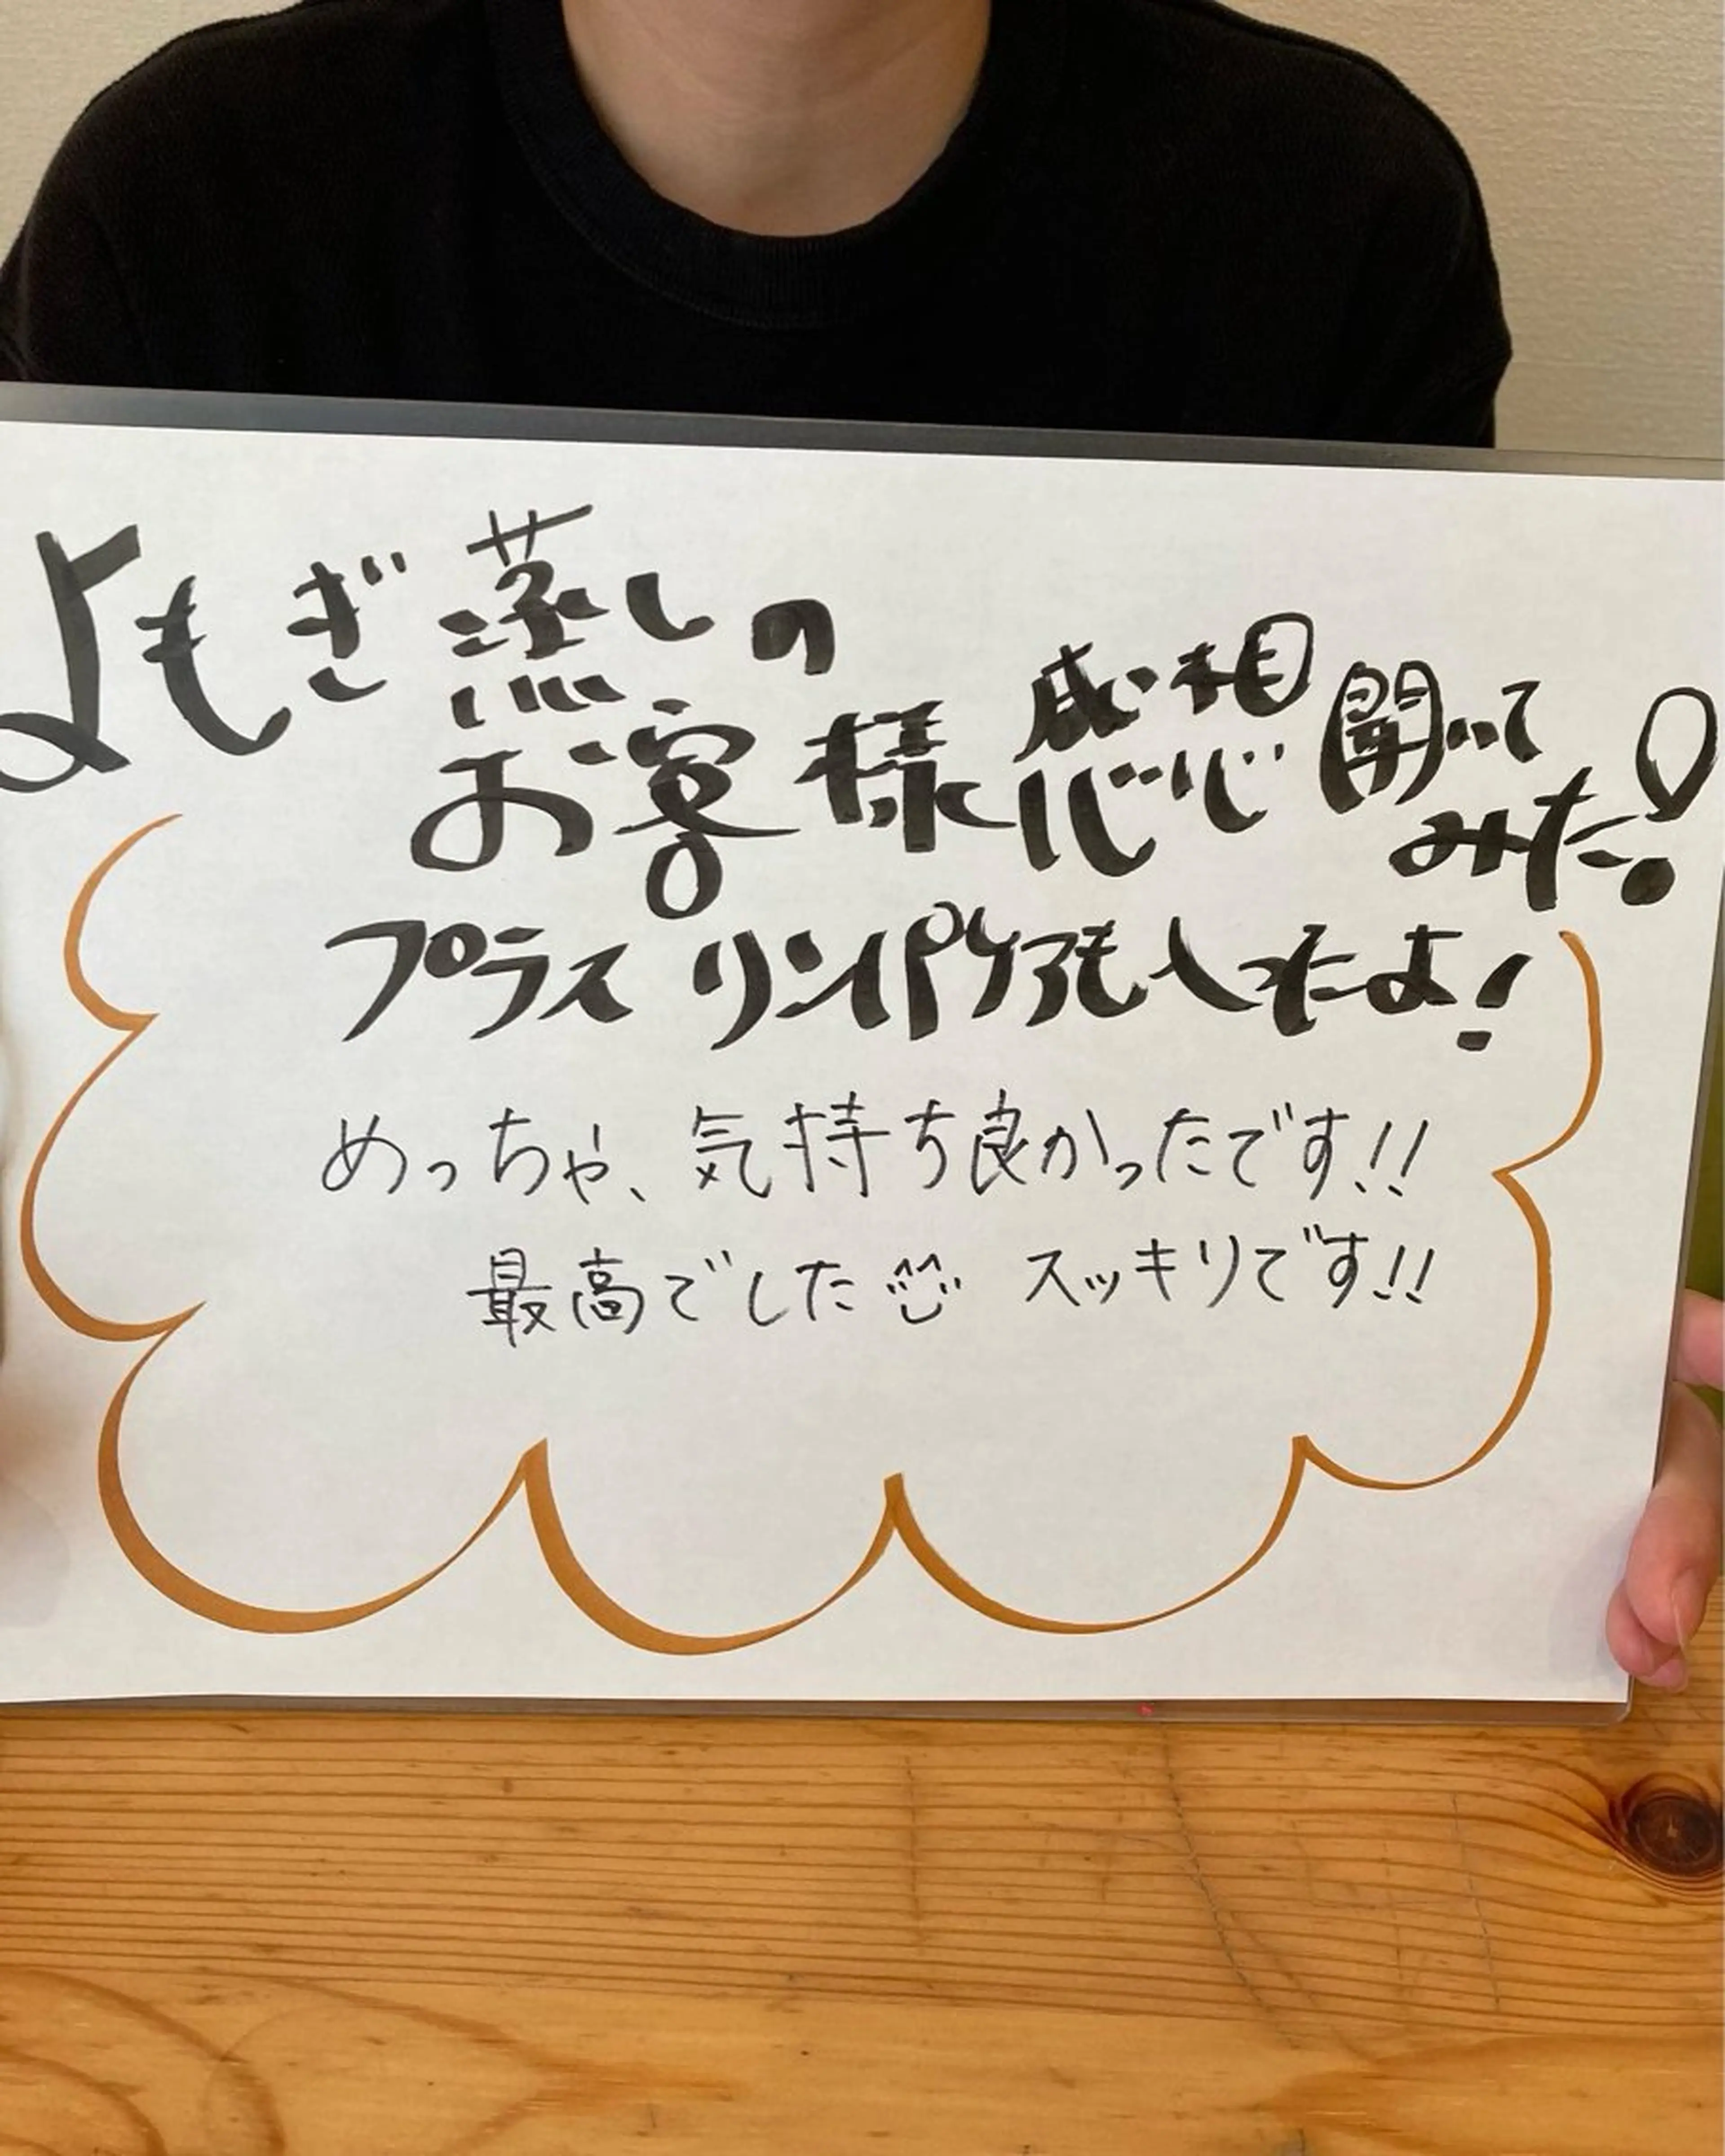 よもぎ蒸しの
お客様感想聞いて
みた!
プラス リンパケアも入ったよ!
めっちゃ、気持ち良かったです!!
最高でした スッキリです!!